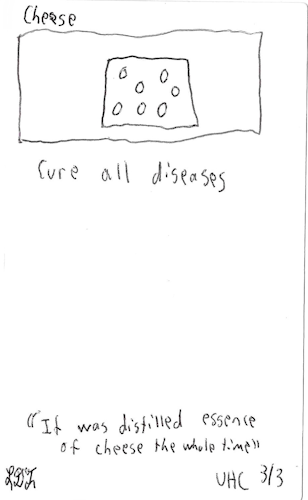 Cheese
Cure all diseases
"It was distilled essence
of cheese the whole time"
UHC 3/3